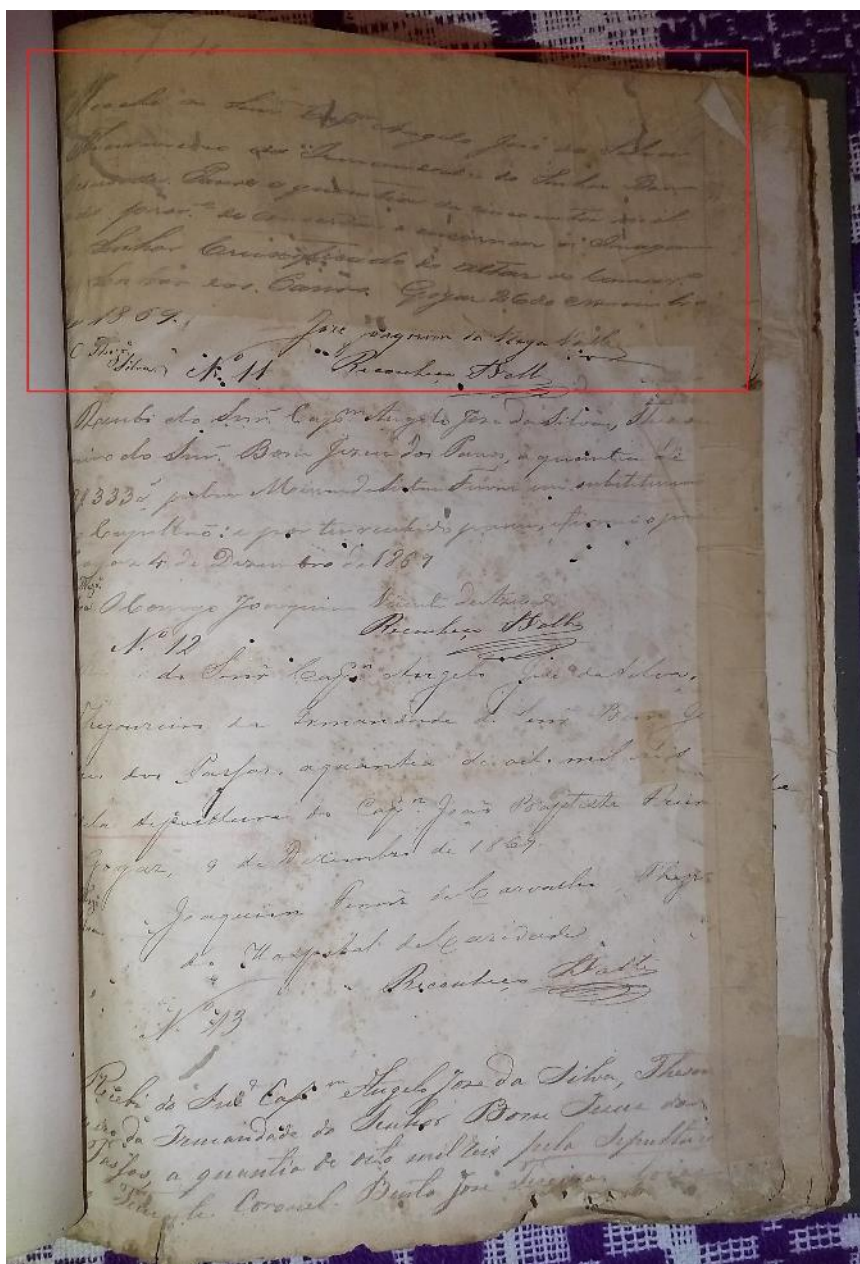 Recebi do Snr. Capm. Angelo José da Silva
Thesoureiro da Irmandade do Senhor Bom
Jesus dos Passos a quantia de cincoenta mil
de concertar e encarnar a Imagem
do Senhor Crucificado do altar
Senhor dos Passos. Goyaz 26 de Novembro
de 1869.
José Joaquim da Veiga Valle
Silva Nº 11 Reconheço Valle
Recebi do Snr. Capm. Angelo José da Silva, Thesou
reiro do Snr. Bom Jezus dos Paços, a quantia de
8$333 pelas Missas
Capellão: e por ter recebido
Goyaz 4 de Dezembro de 1869
O Conego Joaquim Vicente de Azevedo
Nº 12 Reconheço Valle
do Snr. Capm. Angelo José da Silva,
Thezoureiro da Irmandade do Senr. Bom Je
zus dos Passos, a quantia de oito mil réis
pela sepultura do Capm. João Baptista
Goyaz, 9 de Dezembro de 1869
Joaquim de Carvalho Thezro
do Hospital de Caridade
Reconheço Valle
Nº 13
Recebi do Snr. Capm. Angelo José da Silva, Thesou
da Irmandade do Senhor Bom Jesus dos
Passos, a quantia de oito mil reis pela sepultura
Tenente Coronel Bento José